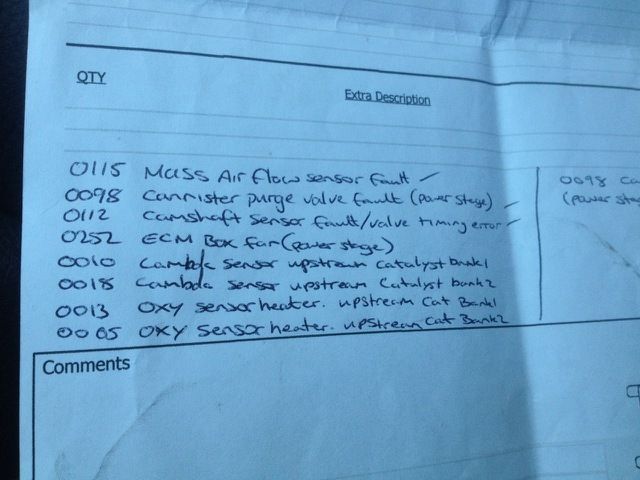 QTY
Extra Description
0115 Mass Air flow sensor fault
0098 Cannister purge valve fault (power stage)
0112 Camshaft sensor fault/valve timing error
0252 ECM Box fan (power stage)
0010 Lambda sensor upstream catalyst bank1
0018 Lambda sensor upstream Catalyst bank2
0013 OXY sensor heater. upstream Cat Bank1
0005 OXY sensor heater. upstream Cat Bank2
0098 Ca
(power stag
Comments